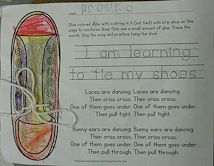 Glue colored shoe with a string in it (not tied) with blue shoe on this
page to reinforce shoe. Only use a small amount of glue. Trace the
words. Sing the song and practice tying the shoe
I am learning
to tie my shoes
Laces are dancing. Laces are dancing.
Then criss cross. Then criss cross.
One of them goes under. One of them goes under.
Then pull tight. Then pull tight.
Bunny ears are dancing. Bunny ears are dancing.
Then criss cross. Then criss cross.
One of them goes under. One of them goes under.
Then pull through. Then pull through.